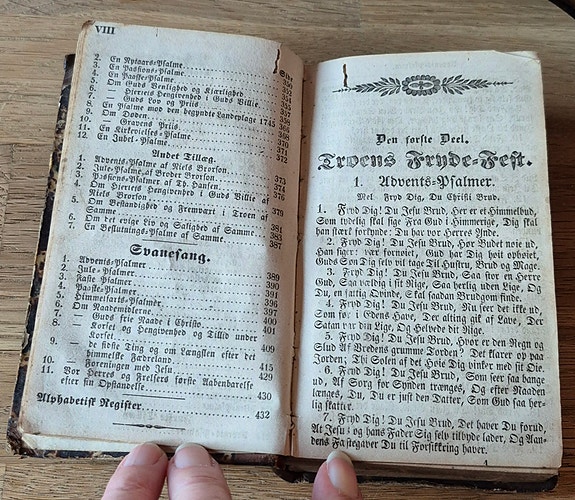 VIII
Side
2. En Nytaars-Psalme 350
3. En Passions-Psalme 352
4. En Paaske-Psalme 354
5. Om Guds Venlighed og Kjærlighed 355
6. — Hjertets Hengivenhed i Guds Villie 357
7. — Guds Lov og Priis
8. En Psalme mod den begyndte Landeplage 1745 365
9. Om Døden 366
10. — Gravens Priis 370
11. En Kirkevielses-Psalme 371
12. En Jubel-Psalme 372
Andet Tillæg.
1. Advents-Psalme af Niels Brorson 373
2. Jule-Psalme af Broder Brorson 374
3. Passions-Psalmer af Th. Hansen 376
4. Om Hjertets Hengivenhed i Guds Villie af
Niels Brorson 379
5. Om Bestandighed og Fremvært i Troen af
Samme 381
6. Om det evige Liv og Salighed af Samme 383
7. En Beslutnings-Psalme af Samme 387
Svanesang.
1. Advents-Psalmer 389
2. Jule-Psalmer 390
3. Faste-Psalmer 391
4. Paaske-Psalmer 394
5. Himmelfarts-Psalmer 396
6. Om Naademidlerne 397
7. — Guds frie Naade i Christo 400
8. — Korset og Hengivenhed og Tillid under 401
Korset
9. — de sidste Ting og om Længslen efter det 409
himmelske Fædreland 415
10. — Foreningen med Jesu 429
11. Vor Herres og Frelsers første Aabenbarelse
efter sin Opstandelse 430
Alphabetisk Register 432
Den første Deel.
Troens Fryde-Fest.
1. Advents-Psalmer.
Mel. Fryd Dig, Du Christi Brud.
1. Fryd Dig! Du Jesu Brud, Her er et Himmelbud,
Som tydelig skal sige Fra Gud i Himmerige, Dig skal
han stærkt forkynde: Du har vor Herres Ynde.
2. Fryd Dig! Du Jesu Brud, Hør Budet nøie ud,
Han siger: vær fornøiet, Gud har Dig høit ophøiet,
Guds Søn Dig selv vil tage Til Hustru, Brud og Mage.
3. Fryd Dig! Du Jesu Brud, Saa stor en Herre
Gud, Saa vældig i sit Rige, Saa herlig uden Lige, Og
Du, en fattig Qvinde, Skal saadan Brudgom finde.
4. Fryd Dig! Du Jesu Brud, Nu seer det ikke ud,
Som før i Edens Have, Der alting gik af Lave, Der
Satan var din Lige, Og Helvede dit Rige.
5. Fryd Dig! Du Jesu Brud, Hvor er den Regn og
Slud Af Vredens grumme Torden? Det klarer op paa
Jorden; Thi Solen af det Høie Dig vinker med sit Øie.
6. Fryd Dig! Du Jesu Brud, Som seer saa bange
ud, Af Sorg for Synden trænges, Og efter Naaden
længes, Du, Du er just den Datter, Som Gud saa her-
lig skatter.
7. Fryd Dig! Du Jesu Brud, Det haver Du forud,
At Jesus og hans Fader Sig selv tilbyde lader, Og Aan-
dens Fæstegaver Du til Forsikkring haver.